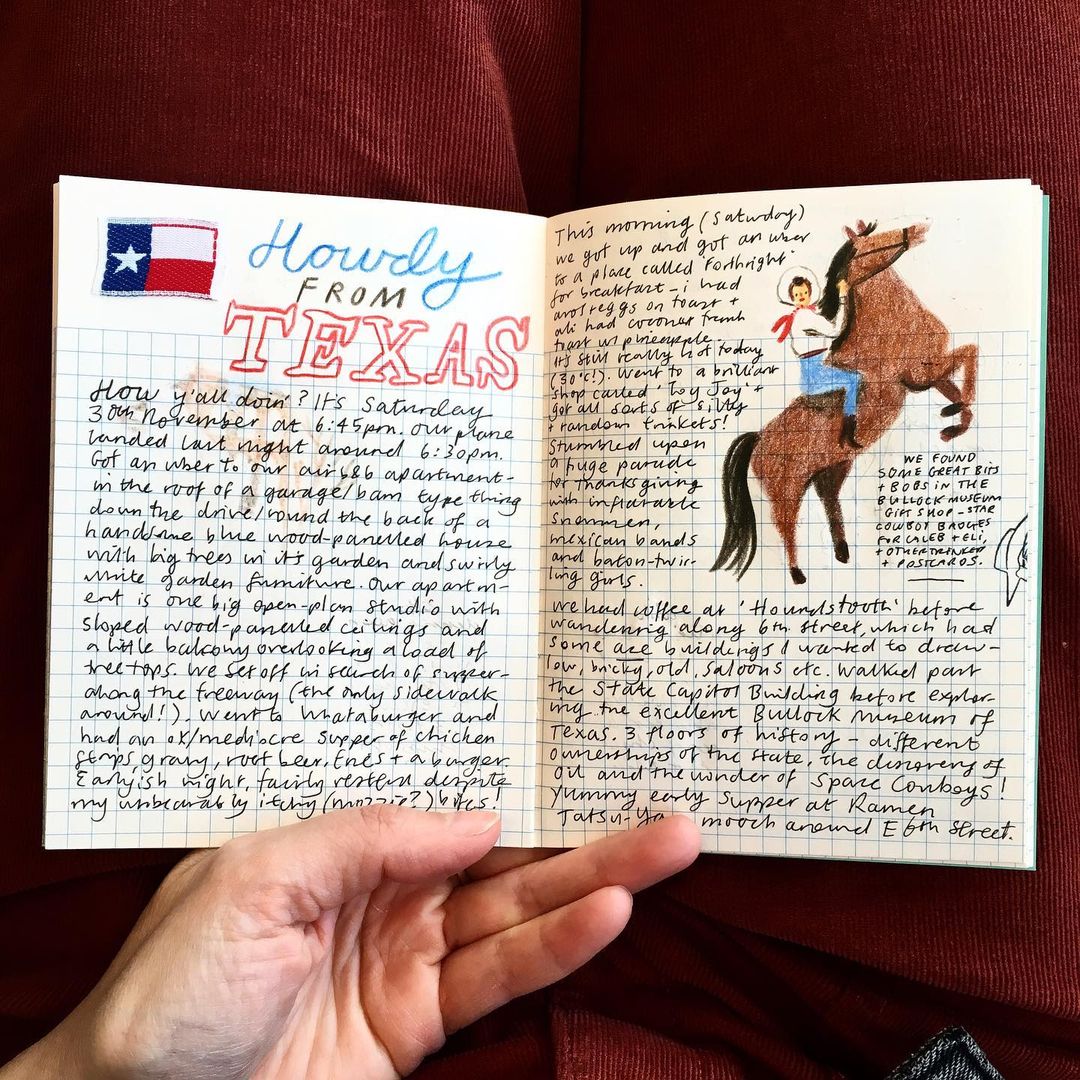 Howdy
FROM
TEXAS
How y'all doin'? It's Saturday
30th November at 6:45pm. Our plane
landed last night around 6:30pm.
Got an uber to our airb&b apartment-
in the roof of a garage/barn type thing
down the drive/round the back of a
handsome blue wood-panelled house
with big trees in it's garden and swirly
white garden furniture. Our apartm-
ent is one big open-plan studio with
sloped wood-panelled ceilings and
a little balcony overlooking a load of
tree tops. We set off in search of supper-
along the freeway (the only sidewalk
around!). Went to Whataburger and
had an ok/mediocre supper of chicken
strips, gravy, root beer, fries + a burger.
Earlyish night, fairly restful despite
my unbearably itchy (mozzie?) bites!
This morning (Saturday)
we got up and got an uber
to a place called 'Forthright'
for breakfast - i had
avo + eggs on toast +
ali had coconut french
toast w/ pineapple.
It's still really hot today
(30°c!). Went to a brilliant
shop called 'Toy Joy' +
got all sorts of silly
+ random trinkets!
Stumbled upon
a huge parade
for Thanksgiving
with inflatable
snowmen,
mexican bands
and baton-twir-
ling girls.
WE FOUND
SOME GREAT BITS
+ BOBS IN THE
BULLOCK MUSEUM
GIFT SHOP - STAR
COWBOY BADGES
FOR CALEB + ELI,
+ OTHER TRINKETS
+ POSTCARDS.
We had coffee at 'Houndstooth' before
wandering along 6th Street, which had
some ace buildings I wanted to draw-
low, bricky, old, saloons etc. Walked past
the State Capitol Building before explor-
ing the excellent Bullock Museum of
Texas. 3 floors of history - different
ownerships of the state, the discovery of
oil and the wonder of Space Cowboys!
Yummy early supper at Ramen
Tatsu-Ya mooch around E 6th Street.